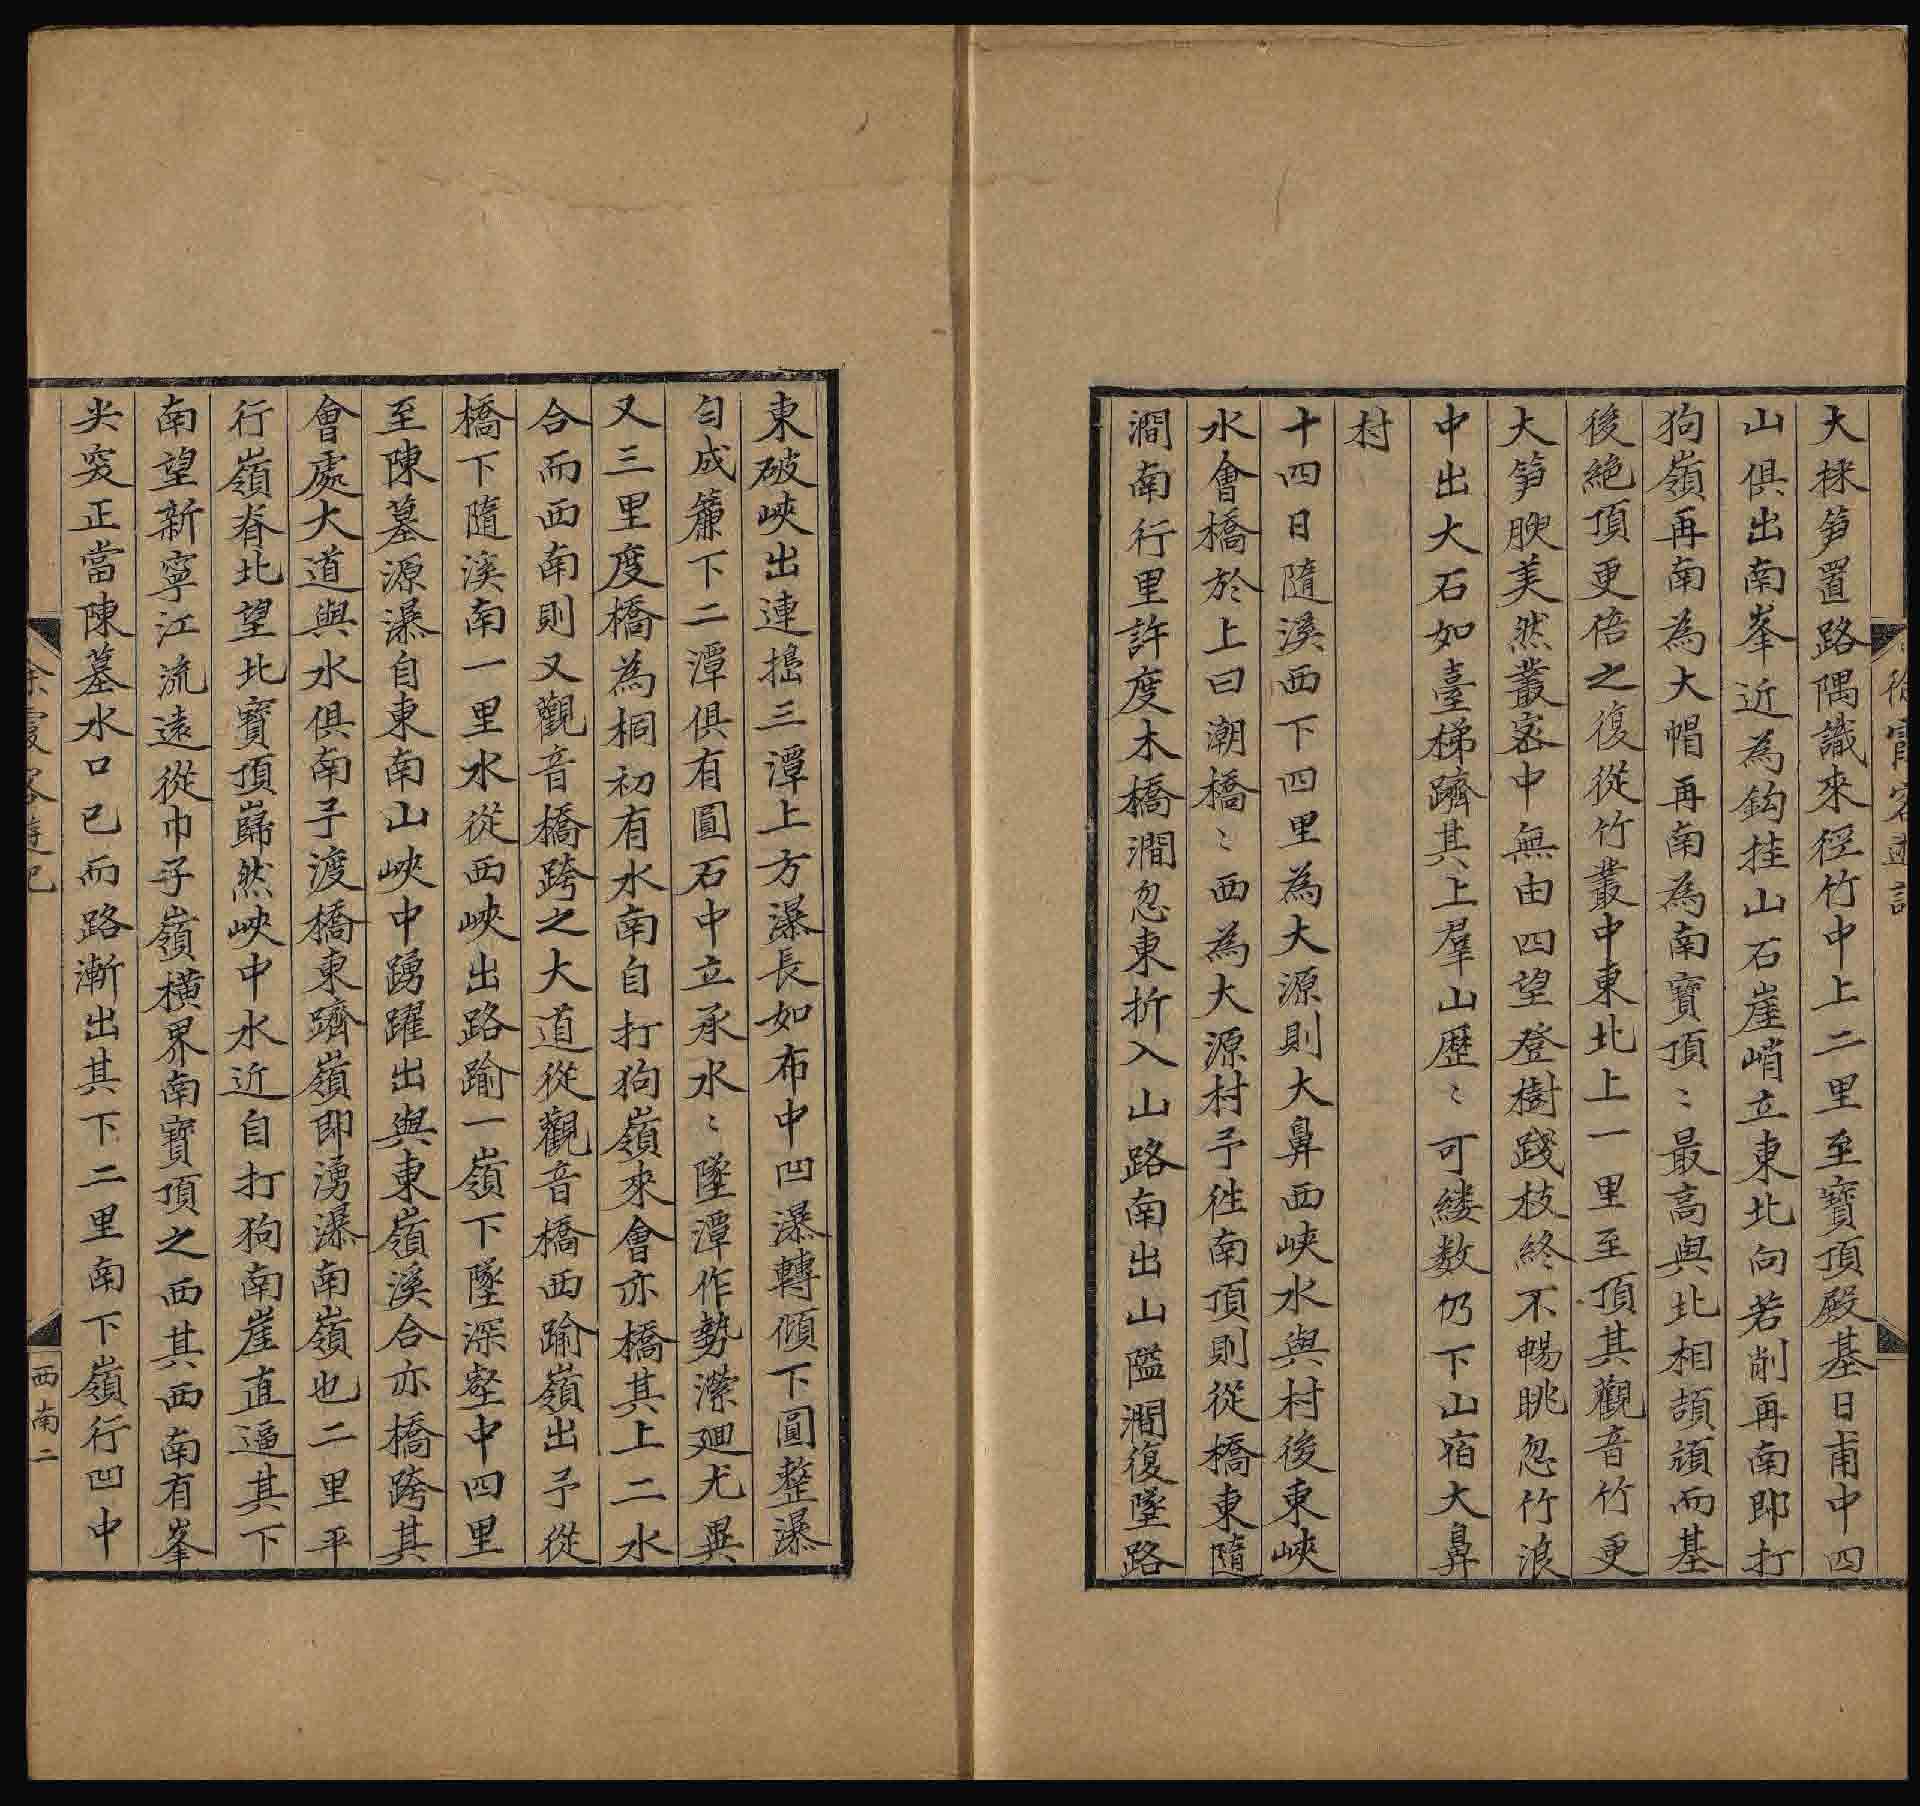 徐霞客遊記
大梂笋置路隅識來徑竹中上二里至寶頂殿基日甫中四
山俱出南峯近為鈎挂山石崖峭立東北向若削再南即打
狗嶺再南為大帽再南為南寶頂〻最高與北相頡頏而基
後絶頂更倍之復從竹叢中東北上一里至頂其觀音竹更
大笋腴美然叢宻中無由四望登樹踐枝終不暢眺忽竹浪
中出大石如臺梯躋其上羣山歴〻可縷数仍下山宿大鼻
村
十四日隨溪西下四里為大源則大鼻西峽水與村後東峽
水會橋於上曰潮橋〻西為大源村予徃南頂則從橋東隨
澗南行里許度木橋澗忽東折入山路南出山隘澗復墜路
東破峽出連搗三潭上方瀑長如布中凹瀑轉傾下圓整瀑
匀成簾下二潭俱有圓石中立承水〻墜潭作勢瀠廻尤異
又三里度橋為桐初有水南自打狗嶺來會亦橋其上二水
合而西南則又觀音橋跨之大道從觀音橋西踰嶺出予從
橋下隨溪南一里水從西峽出路踰一嶺下墜深壑中四里
至陳墓源瀑自東南山峽中踴躍出與東嶺溪合亦橋跨其
會處大道與水俱南予渡橋東躋嶺即湧瀑南嶺也二里平
行嶺脊北望北寶頂巋然峽中水近自打狗南崖直逼其下
南望新寧江流遠從巾子嶺横界南寶頂之西其西南有峯
尖突正當陳墓水口已而路漸出其下二里南下嶺行凹中
徐霞客遊記
西南二